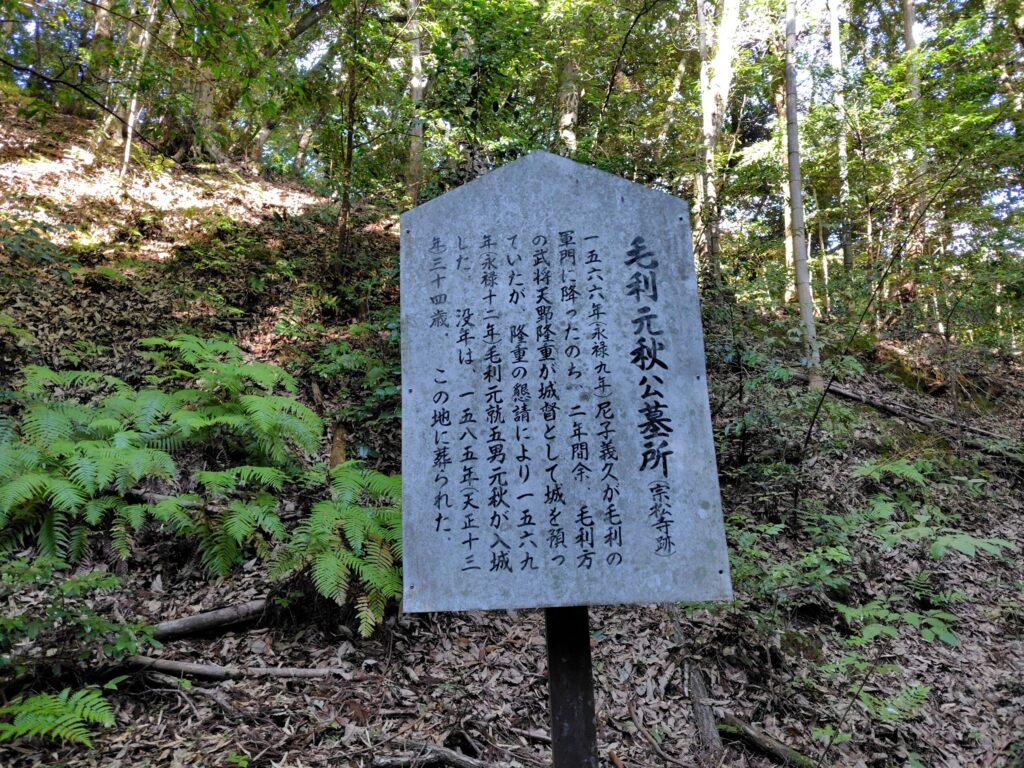 毛利元秋公墓所（宗松寺跡）
一五六六年（永禄九年）尼子義久が毛利の
軍門に降ったのち、二年間余、毛利方
の武将天野隆重が城督として城を預っ
ていたが、隆重の懇請により一五六九
年（永禄十二年）毛利元就五男元秋が入城
した。没年は、一五八五年（天正十三
年）三十四歳。この地に葬られた。